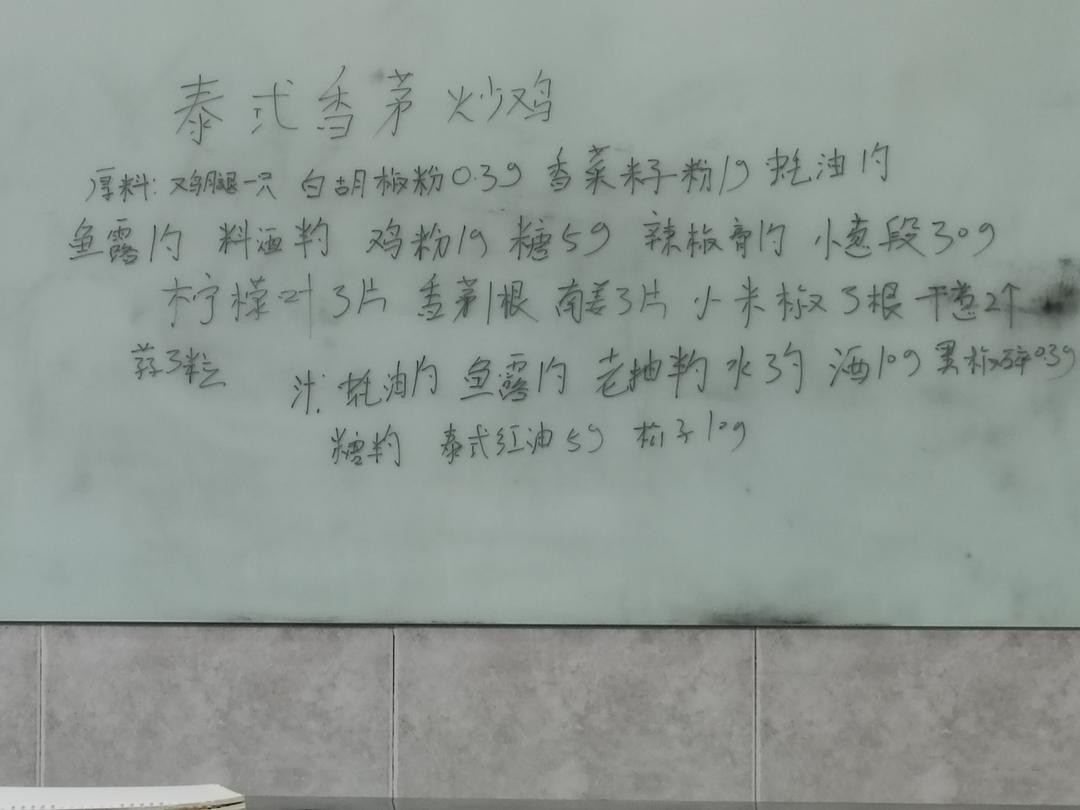 泰式香茅炒鸡
厚料: 鸡腿一只 白胡椒粉0.3g 香菜籽粉1g 蚝油1勺
鱼露1勺 料酒半勺 鸡粉1g 糖5g 辣椒膏1勺 小葱段30g
柠檬叶3片 香茅1根 南姜3片 小米椒3根 干葱2个
蒜3粒 汁: 蚝油1勺 鱼露1勺 老抽半勺 水3勺 酒10g 黑椒碎0.3g
糖半勺 泰式红油5g 10g